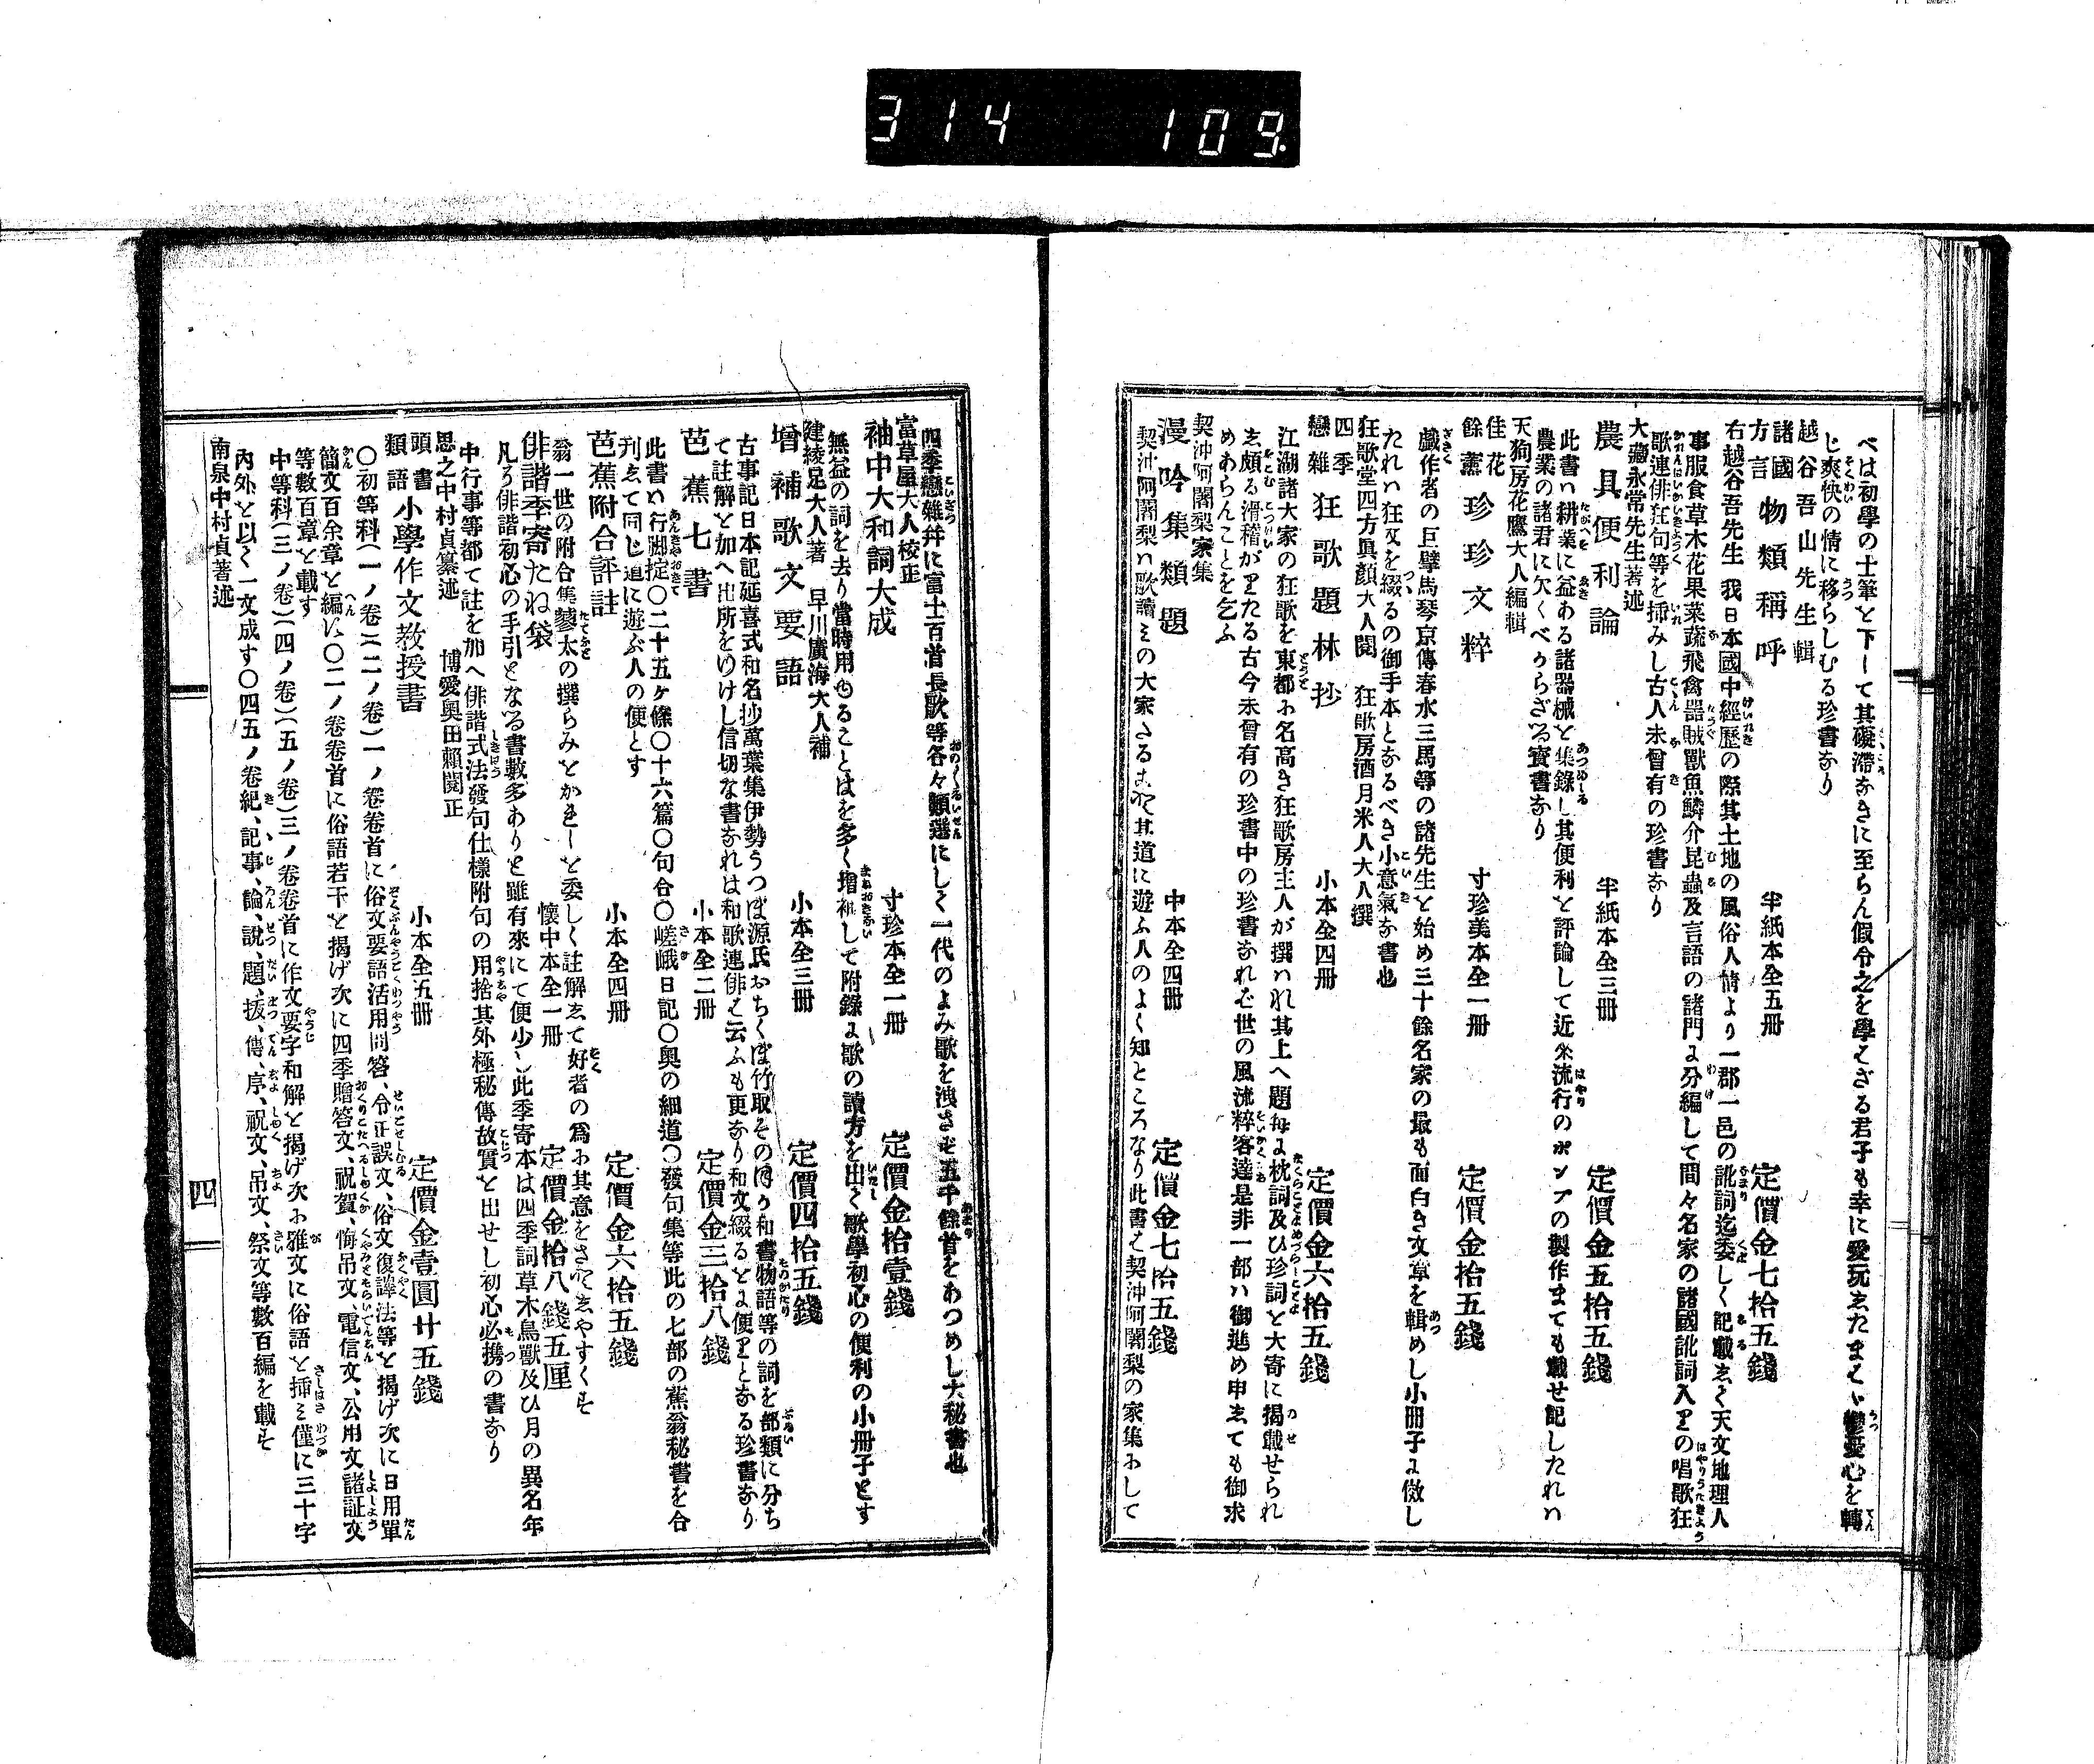 314 109.
べは初學の士筆と下して其礙滯なきに至らん假令之を學ばざる君子も幸に愛玩ゑたまはゞ鬱憂心を轉
じ爽快の情に移らしむる珍書なり
越谷吾山先生輯
諸國方言 物類稱呼 半紙本全五冊 定價金七拾五錢
右越谷吾先生我日本國中經歷の際其土地の風俗人情より一郡一邑の訛詞迄委しく記載ゑて天文地理人
事服食草木花果菜蔬飛禽器賊獸魚鱗介昆蟲及言語の諸門に分編して間々名家の諸國訛詞入りの唱歌狂
歌連俳狂句等を揷みし古人未曾有の珍書なり
大藏永常先生著述
農具便利論 半紙本全三冊 定價金五拾五錢
此書ハ耕業に益ある諸器械と集錄し其便利と評論して近來流行のポンプの製作までも載せ記したれハ
農業の諸君に欠くべからざる寳書なり
天狗房花鷹大人編輯
佳花餘薰 珍珍文粹 寸珍美本全一冊 定價金拾五錢
戲作者の巨擘馬琴京傳春水三馬等の諸先生と始め三十餘名家の最も面白き文章を輯めし小冊子に倣し
たれハ狂文を綴るの御手本となるべき小意氣な書也
狂歌堂四方眞顏大人閱 狂歌房酒月米人大人撰
四季戀雜 狂歌題林抄 小本全四冊 定價金六拾五錢
江湖諸大家の狂歌を東都に名高き狂歌房主人が撰ハれ其上へ題每に枕詞及ひ珍詞と大寄に揭載せられ
ゑ頗る滑稽がりたる古今未曾有の珍書中の珍書なれど世の風流粹客達是非一部ハ御進め申ゑても御求
めあらんことを乞ふ
契沖阿闍梨家集
漫吟集類題 中本全四冊 定價金七拾五錢
契沖阿闍梨ハ歌讀ミの大家たる 其道に遊ふ人のよく知ところなり此書は契沖阿闍梨の家集にして
四季戀雜幷に富士百首長歌等各々類選にして一代のよみ歌を洩さず五千餘首をあつめし大秘書也
富草屋大人校正
袖中大和詞大成 寸珍本全一冊 定價金拾壹錢
無益の詞を去り當時用ゆることはを多く增補して附錄に歌の讀方を出て歌學初心の便利の小冊子とす
建綾足大人著 早川廣海大人補
增補歌文要語 小本全三冊 定價四拾五錢
古事記日本記延喜式和名抄萬葉集伊勢うつぼ源氏おちくぼ竹取その内り和書物語等の詞を部類に分ち
て註解と加へ出所をわけし信切な書なれは和歌連俳は云ふも更なり和文綴るとに便りとなる珍書なり
芭蕉七書 小本全二冊 定價金三拾八錢
此書ハ行脚掟〇二十五ヶ條〇十六篇〇句合〇嵯峨日記〇奧の細道〇發句集等此の七部の蕉翁秘書を合
刋ゑて同じ道に遊ぶ人の便とす
芭蕉附合評註 小本全四冊 定價金六拾五錢
翁一世の附合集蓼太の撰らみとかきしと委しく註解ゑて好者の爲に其意をさとゑやすくす
俳諧季寄たね袋 懷中本全一冊 定價金拾八錢五厘
凡ろ俳諧初心の手引となる書數多ありと雖有來にて便少し此季寄本は四季詞草木鳥獸及ひ月の異名年
中行事等都て註を加へ俳諧式法發句仕樣附句の用捨其外極秘傳故實と出せし初心必携の書なり
思之中村貞纂述 博愛奧田賴閱正
頭書類語 小學作文敎授書 小本全五冊 定價金壹圓廿五錢
〇初等科(一ノ卷)(二ノ卷)一ノ卷卷首に俗文要語活用問答、令正誤文、俗文復譯法等と揭げ次に日用單
簡文百余章と編に〇二ノ卷卷首に俗語若干と揭げ次に四季贈答文、祝賀、悔吊文、電信文、公用文諸証文
等數百章と載す
中等科(三ノ卷)(四ノ卷)(五ノ卷)三ノ卷卷首に作文要字和解と揭げ次に雅文に俗語と揷ミ僅に三十字
內外と以て一文成す〇四五ノ卷紀、記事、論、說、題、拔、傳、序、祝文、吊文、祭文等數百編を載す
南泉中村貞著述
四